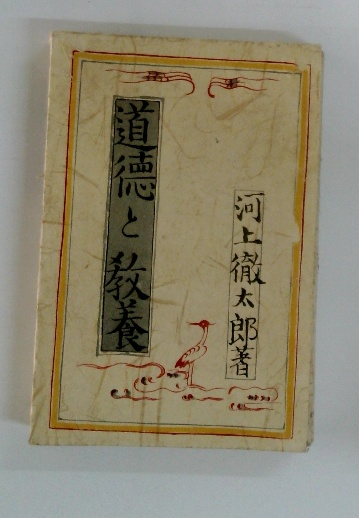 河上徹太郎著
道徳と教養